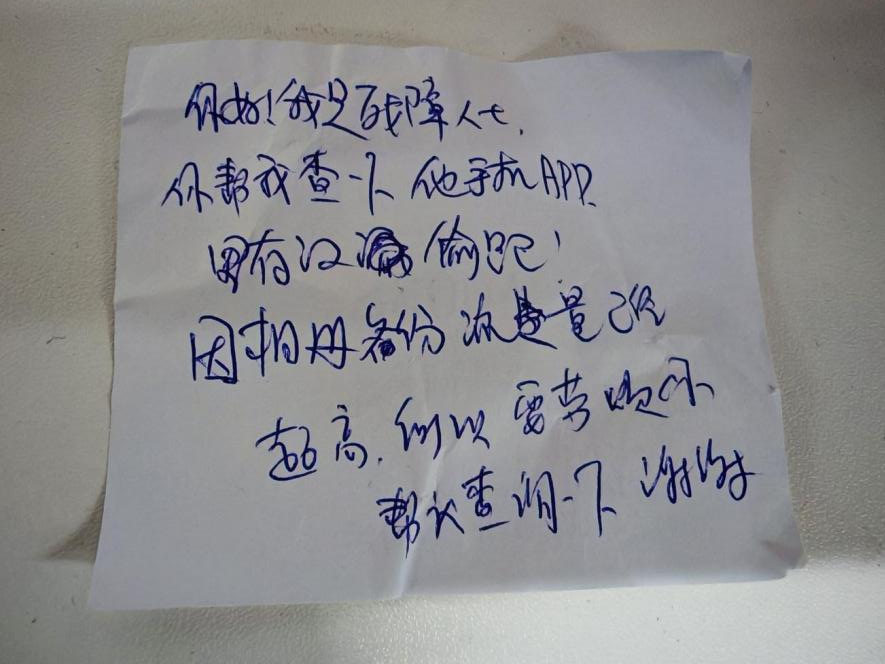 你好！我是残障人士，
你帮我查一下 他手机APP
有没 偷跑，
因相册备份流量已经
超高，所以要劳烦你
帮我查询一下 谢谢